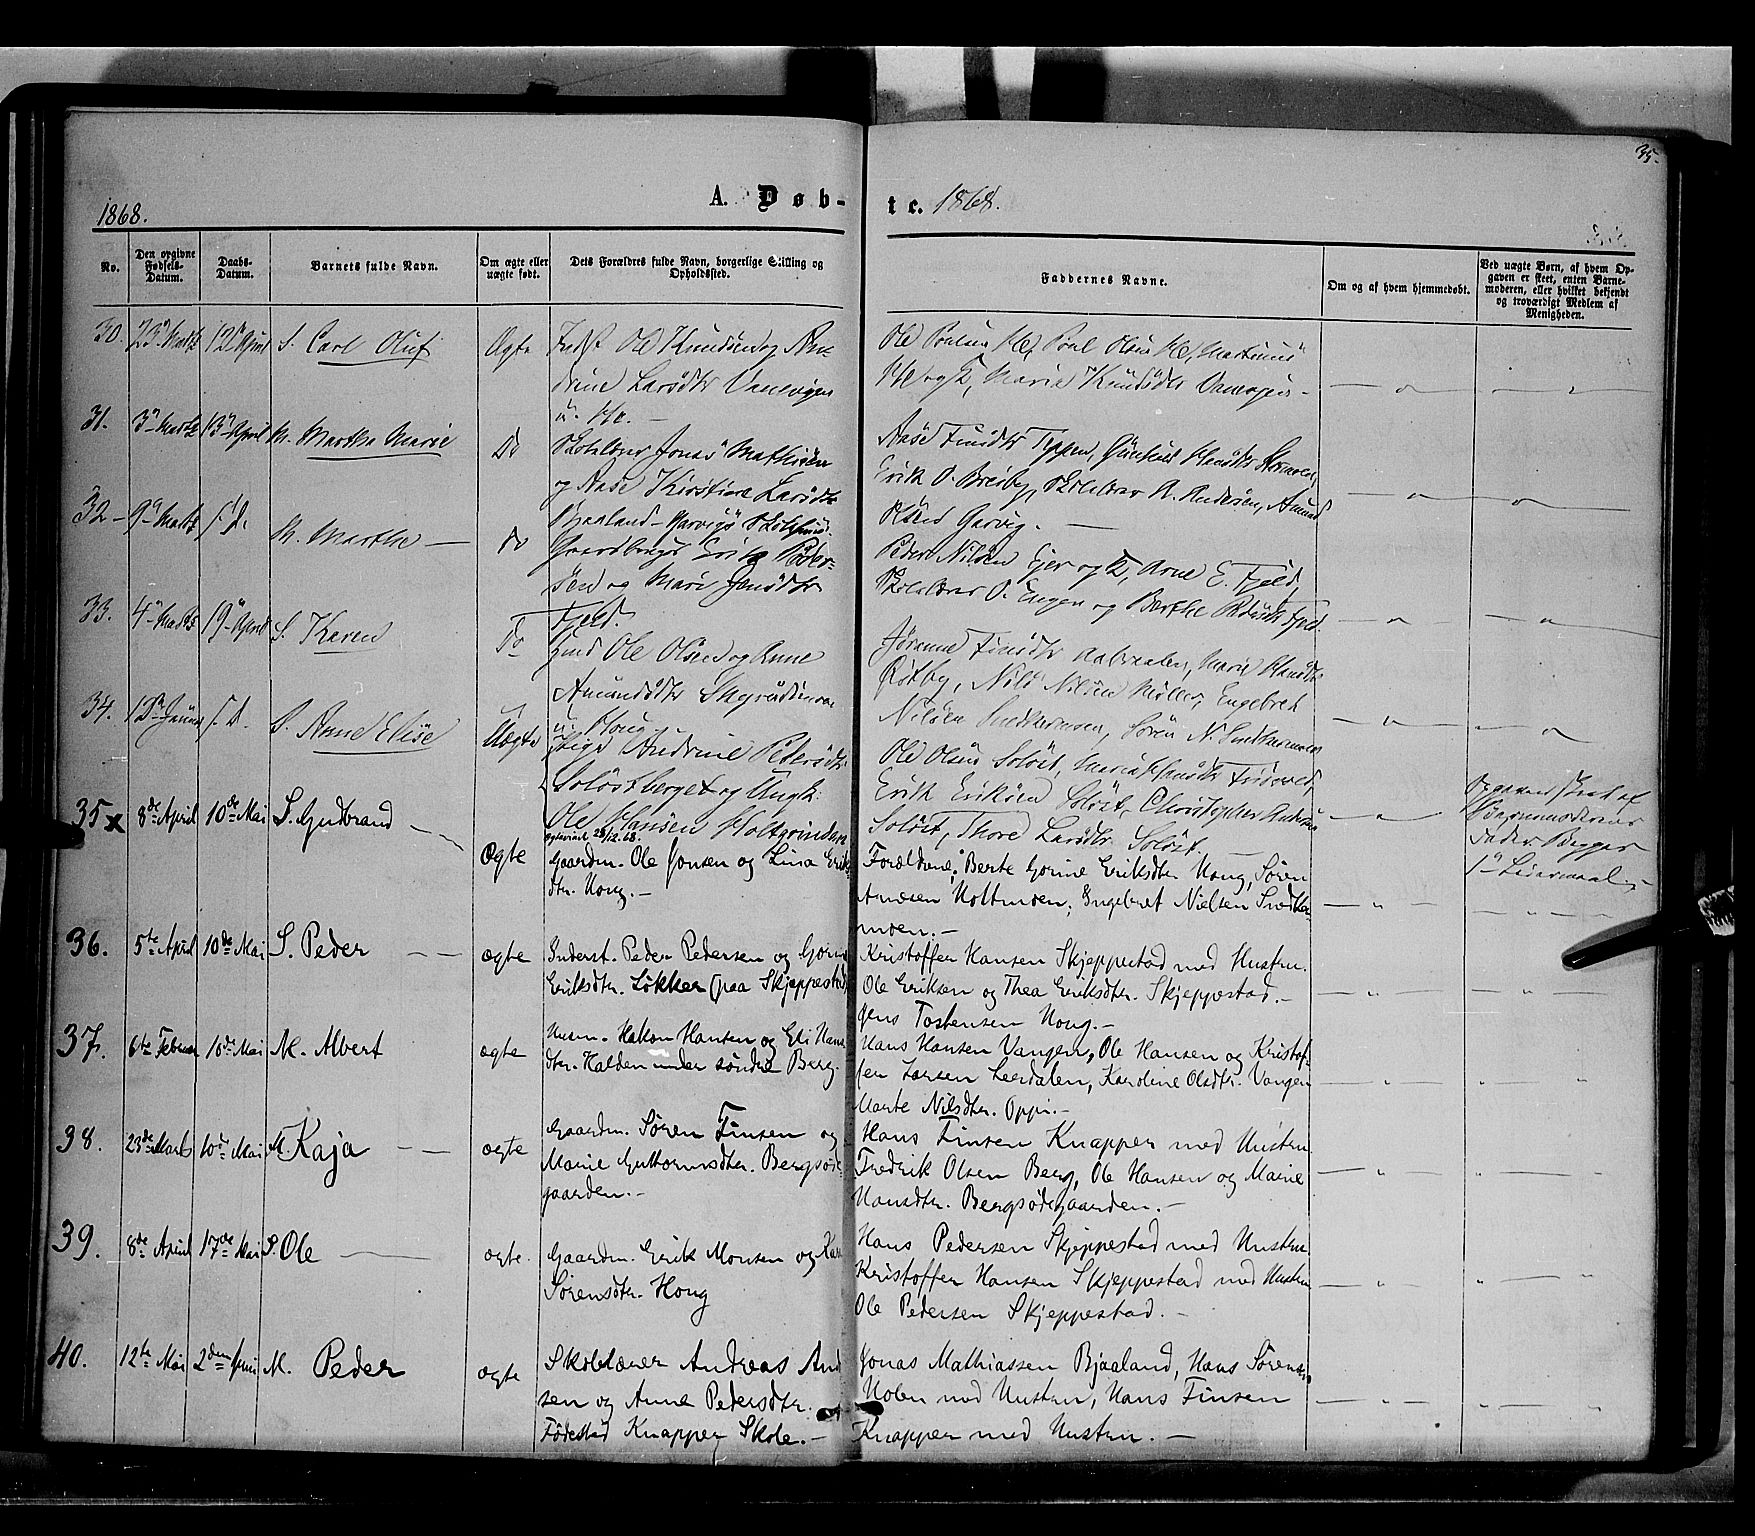 35.
1868.
A. Døb-
te. 1868.
No.
Den opgivne Fødsels-Datum.
Daabs-Datum.
Barnets fulde Navn.
Om ægte eller uægte født.
Dets Forældres fulde Navn, borgerlige Stilling og Opholdssted.
Faddernes Navne.
Om og af hvem hjemmedøbt.
Ved uægte Børn, af hvem Opgaven er skeet, enten Barnemoderen, eller hvilket bekjendt og troværdigt Medlem af Menigheden.
30. 23 Marts 12 April S. Carl Oluf Ægte
Inds Ole Knudsen og An-
drine Larsdtr
Ole Poulsen Poul Olsen Martinus
og K, Marie Knudsdtr
31. 3 Marts 13 April M. Marthe Marie Do
Skolelærer Jonas Mathisen
og Aase Kirstine Larsdtr
Bjaaland
Aase Finsdtr
Erik O. Skolelærer A. Andersen, Amund
Olsen
32 9 Marts s. D. M. Marthe — do
Gaardbruger Erik Peder-
sen og Mari Jensdtr
Fjeld.
Peder Nilsen Ejer og K, Arne E. Fjeld,
Skolelærer O. Engen og Berthe Fjeld.
33. 4 Marts 19 April S. Karen Do
Ole Olsen og Anne
Amundsdtr
u. Houg
Finsdtr Marie Hansdtr
Nils Nilsen Møller, Engebret
Nilsen Smedhermoen, Søren N. Smedhermoen
34. 12 Januar s. D. S. Anne Elise Uægte
Pige Andrine Pedersdtr
Soløstberget og Ungk.
Ole Hansen Holtgrinden
Ole Olsen Soløst, Hansdtr
Erik Eriksen Soløst, Christopher Andersen
Soløst, Thore Larsdtr Soløst. —
Opgaven skeet af
Barnemoderens
Fader. Begges
1 Leiermaal
35 x 8de April 10de Mai S. Gudbrand — Ægte
28/12 68.
Gaardm. Ole Jonsen og Lina Eriks-
dtr. Houg. —
Forældrene; Berte Gorine Eriksdtr. Houg, Søren
Arnesen Holtmoen; Engebret Nielsen Smedher-
moen. —
36. 5te April 10de Mai S. Peder — — ægte
Inderst. Peder Pedersen og Gorine
Eriksdtr. Løkker (paa Skjeppestad)
Kristoffer Hansen Skjeppestad med Hustru.
Ole Eriksen og Thea Eriksdtr. Skjeppestad. —
Jens Tostensen Houg. —
37. 6te Februar 10de Mai M. Albert ægte
Husm. Hakon Hansen og Eli Hans-
dtr. Halden under søndre Berg.
Hans Hansen Vangen, Ole Hansen og Kristof-
fer Larsen Leerdalen, Karoline Olsdtr. Vangen
Marte Nilsdtr. Oppi. —
38. 23de Marts 10de Mai M. Kaja — — ægte
Gaardm. Søren Finsen og
Marie Guttormsdtr. Bergsøde-
gaarden. —
Hans Finsen Knapper med Hustru.
Fredrik Olsen Berg, Ole Hansen og Marie
Hansdtr. Bergsødegaarden. —
39. 8de April 17de Mai S. Ole — ægte.
Gaardm. Erik Monsen og Kari
Sørensdtr. Houg
Hans Pedersen Skjeppestad med Hustru
Kristoffer Hansen Skjeppestad med Hustru
Ole Pedersen Skjeppestad. —
40. 12te Mai 2den Juni M. Peder ægte
Skolelærer Andreas And
sen og Anne Pedersdtr.
Fødested Knapper Skole. —
Jonas Mathiassen Bjaaland, Hans Sørensen
Holen med Hustru, Hans Finsen
Knapper med Hustru. —